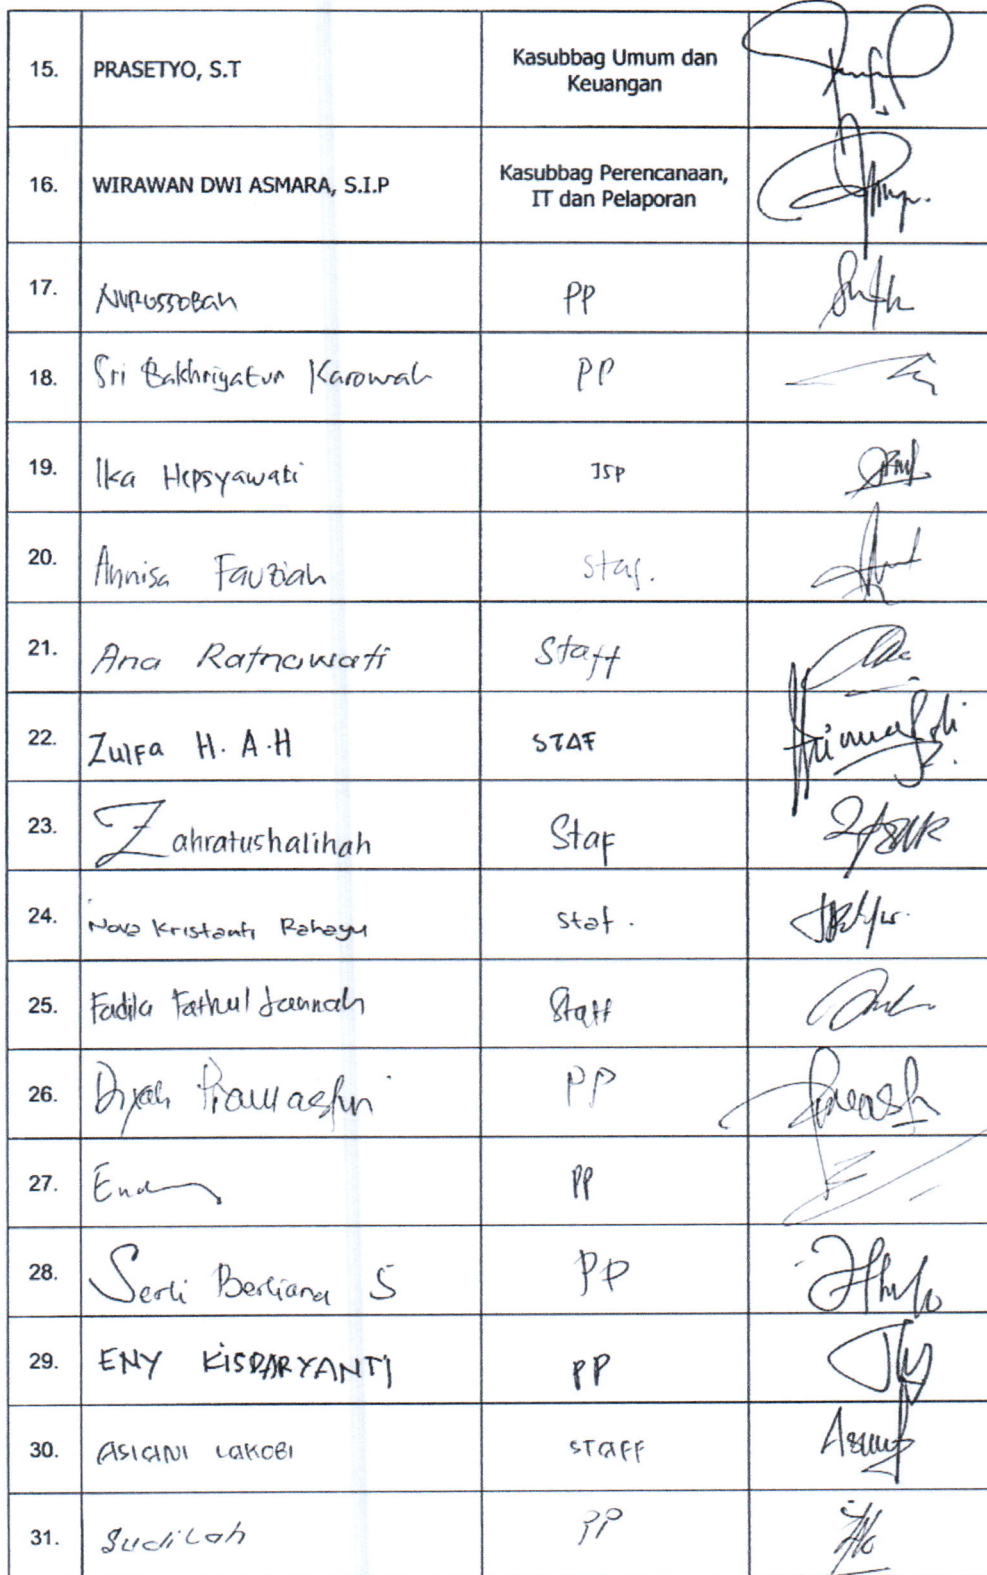 15. PRASETYO, S.T Kasubbag Umum dan
Keuangan
16. WIRAWAN DWI ASMARA, S.I.P Kasubbag Perencanaan,
IT dan Pelaporan
17. NURUSSOBAH PP
18. Sri Bakhriyatun Karowah PP
19. Ika Hepsyawati JSP
20. Annisa Fauziah Staf.
21. Ana Ratnawati Staff
22. Zulfa H. A.H STAF
23. Zahratushalihah Staf
24. Nova Kristanti Rahayu staf.
25. Fadila Fathul Jannah Staff
26. Dyah PP
27. PP
28. Serli Berliana S PP
29. ENY KISDARYANTI PP
30. ASIANI LAKOBI STAFF
31. Sudilah PP